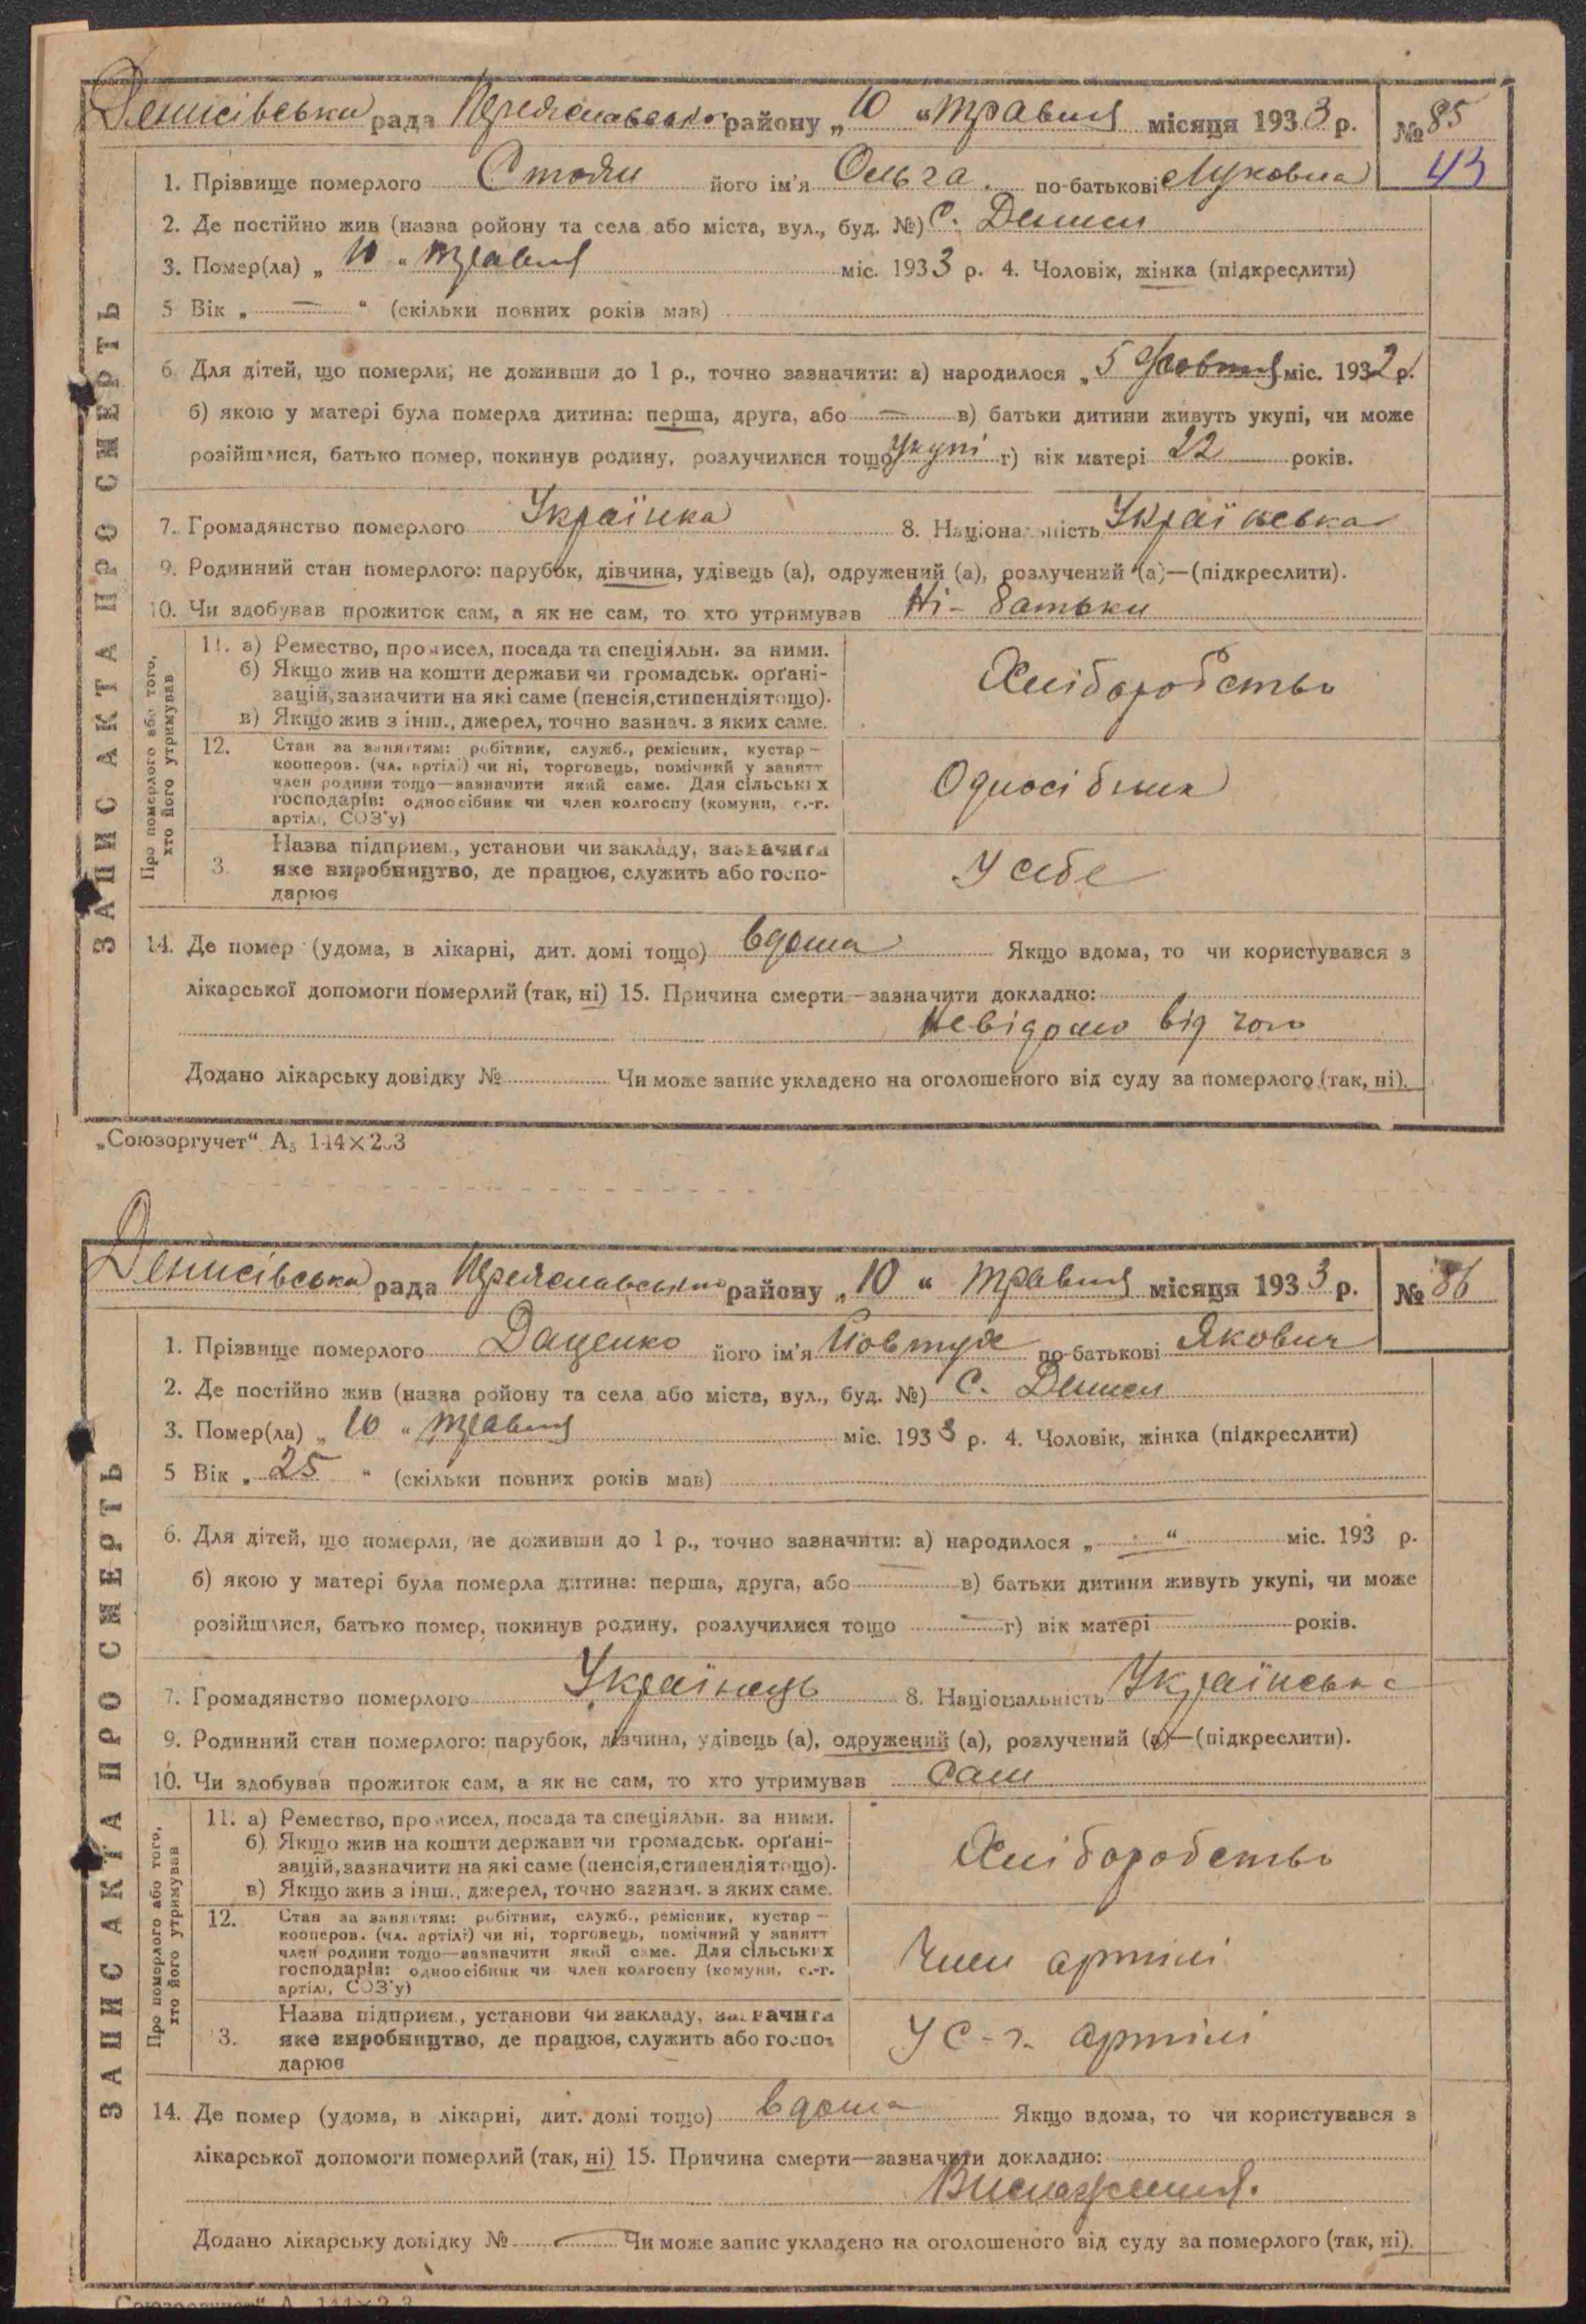 Денисівська рада Переяславського району „10“ травня місяця 1933 р. № 85
43
ЗАПИС АКТА ПРО СМЕРТЬ
1. Прізвище померлого Стоян його ім'я Ольга по-батькові Луковна
2. Де постійно жив (назва ройону та села або міста, вул., буд. №) С. Дениси
3. Помер(ла) „10“ травня міс. 1933 р. 4. Чоловік, жінка (підкреслити)
5 Вік „—“ (скільки повних років мав)
6. Для дітей, що померли, не доживши до 1 р., точно зазначити: а) народилося „5 жовтня міс. 1932 р.
б) якою у матері була померла дитина: перша, друга, або — в) батьки дитини живуть укупі, чи може
розійшлися, батько помер, покинув родину, розлучилися тощо укупі г) вік матері 22 років.
7. Громадянство померлого Українка 8. Національність Українська
9. Родинний стан померлого: парубок, дівчина, удівець (а), одружений (а), розлучений (а)—(підкреслити).
10. Чи здобував прожиток сам, а як не сам, то хто утримував Ні - батьки
Про померлого або того, хто його утримував
11. а) Ремество, промисел, посада та спеціяльн. за ними.
б) Якщо жив на кошти держави чи громадськ. орґані-
зацій, зазначити на які саме (пенсія, стипендія тощо).
в) Якщо жив з інш., джерел, точно зазнач. з яких саме.
Хліборобство
12. Стан за заняттям: робітник, служб., ремісник, кустар —
кооперов. (чл. артілі) чи ні, торговець, помічний у занятт
член родини тощо—зазначити який саме. Для сільських
господарів: одноосібник чи член колгоспу (комуни, с.-г.
артілі, СОЗ'у)
Односібник
3. Назва підприєм., установи чи закладу, зазначити
яке виробництво, де працює, служить або госпо-
дарює
У себе
14. Де помер (удома, в лікарні, дит. домі тощо) вдома Якщо вдома, то чи користувався з
лікарської допомоги померлий (так, ні) 15. Причина смерти—зазначити докладно:
Невідомо від чого
Додано лікарську довідку № Чи може запис укладено на оголошеного від суду за померлого (так, ні).
„Союзоргучет“ А5 144×203
Денисівська рада Переяславського району „10“ травня місяця 1933 р. № 86
ЗАПИС АКТА ПРО СМЕРТЬ
1. Прізвище померлого Даценко його ім'я Йовтух по-батькові Якович
2. Де постійно жив (назва ройону та села або міста, вул., буд. №) С. Дениси
3. Помер(ла) „10“ травня міс. 1933 р. 4. Чоловік, жінка (підкреслити)
5 Вік „25“ (скільки повних років мав)
6. Для дітей, що померли, не доживши до 1 р., точно зазначити: а) народилося „—“ міс. 193 р.
б) якою у матері була померла дитина: перша, друга, або — в) батьки дитини живуть укупі, чи може
розійшлися, батько помер, покинув родину, розлучилися тощо — г) вік матері — років.
7. Громадянство померлого Українець 8. Національність Українська
9. Родинний стан померлого: парубок, дівчина, удівець (а), одружений (а), розлучений (а)—(підкреслити).
10. Чи здобував прожиток сам, а як не сам, то хто утримував Сам
Про померлого або того, хто його утримував
11. а) Ремество, промисел, посада та спеціяльн. за ними.
б) Якщо жив на кошти держави чи громадськ. орґані-
зацій, зазначити на які саме (пенсія, стипендія тощо).
в) Якщо жив з інш., джерел, точно зазнач. з яких саме.
Хліборобство
12. Стан за заняттям: робітник, служб., ремісник, кустар —
кооперов. (чл. артілі) чи ні, торговець, помічний у занятт
член родини тощо—зазначити який саме. Для сільських
господарів: одноосібник чи член колгоспу (комуни, с.-г.
артілі, СОЗ'у)
Член артілі
3. Назва підприєм., установи чи закладу, зазначити
яке виробництво, де працює, служить або госпо-
дарює
У С-г. артілі
14. Де помер (удома, в лікарні, дит. домі тощо) вдома Якщо вдома, то чи користувався з
лікарської допомоги померлий (так, ні) 15. Причина смерти—зазначити докладно:
Виснаження.
Додано лікарську довідку № — Чи може запис укладено на оголошеного від суду за померлого (так, ні).
„Союзоргучет“ А 144×2 3